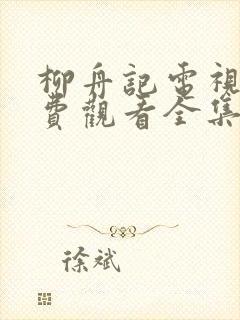 柳舟記電視
費觀看全集
徐斌